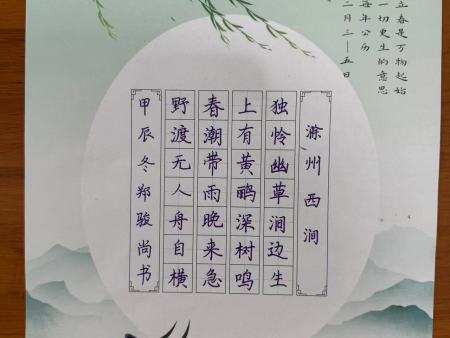 立春是万物起始
一切更生的意思
每年公历
二月三—五日
滁州西涧
独怜幽草涧边生
上有黄鹂深树鸣
春潮带雨晚来急
野渡无人舟自横
甲辰冬郑骏尚书